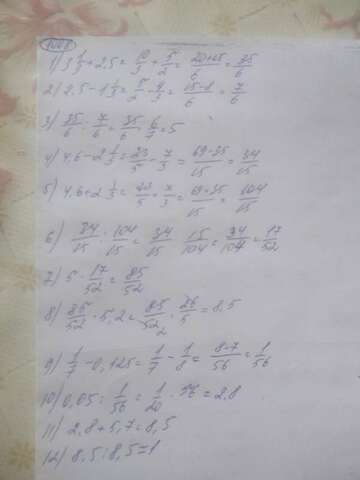 1) 3 1/3 + 2,5 = 10/3 + 5/2 = 20+15/6 = 35/6
2) 2,5 - 1 1/3 = 5/2 - 4/3 = 15-8/6 = 7/6
3) 35/6 : 7/6 = 35/6 · 6/7 = 5
4) 4,6 - 2 1/3 = 23/5 - 7/3 = 69-35/15 = 34/15
5) 4,6 + 2 1/3 = 23/5 + 7/3 = 69+35/15 = 104/15
6) 34/15 : 104/15 = 34/15 · 15/104 = 34/104 = 17/52
7) 5 · 17/52 = 85/52
8) 85/52 · 5,2 = 85/52 · 26/5 = 8,5
9) 1/7 - 0,125 = 1/7 - 1/8 = 8-7/56 = 1/56
10) 0,05 : 1/56 = 1/20 · 56 = 2,8
11) 2,8 + 5,7 = 8,5
12) 8,5 : 8,5 = 1